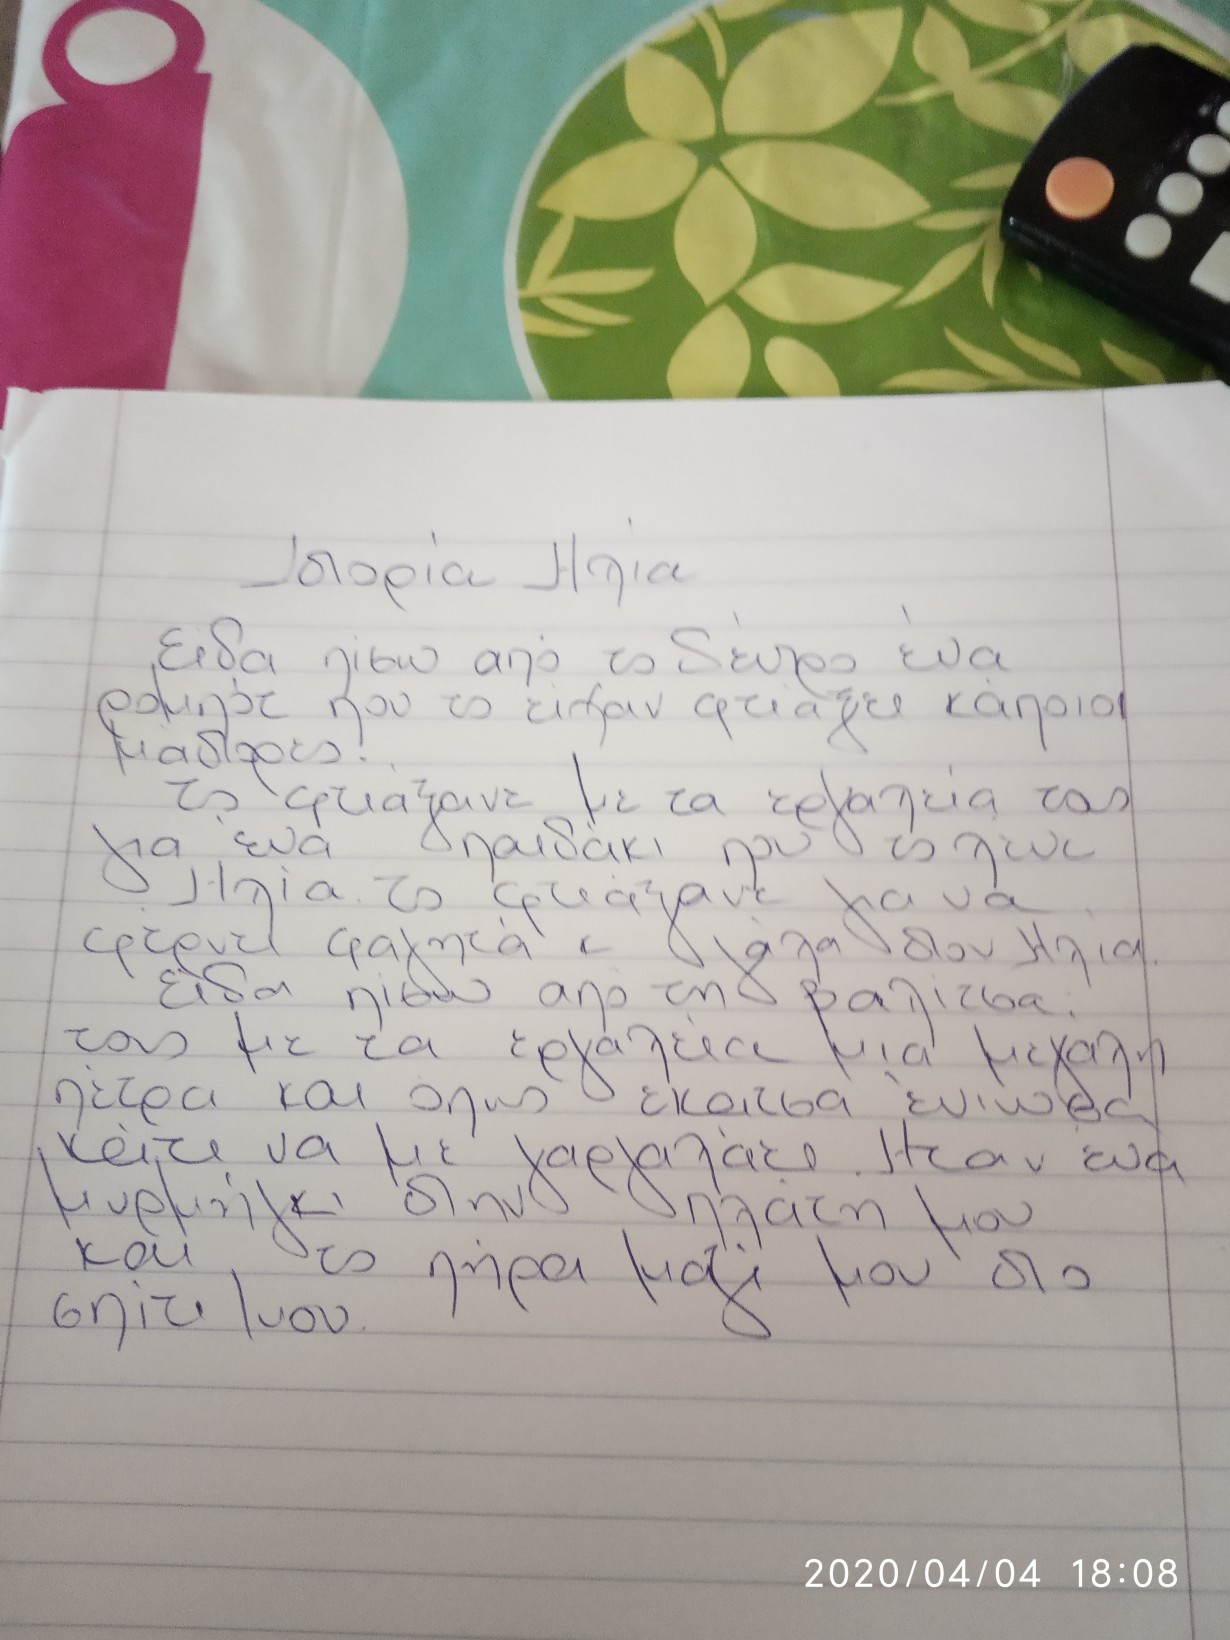 Ιστορία Ηλία
Είδα πίσω από το δέντρο ένα
ρομπότ που το είχαν φτιάξει κάποιοι
μάστορες.
Το φτιάξανε με τα εργαλεία τους
για ένα παιδάκι που το λένε
Ηλία. το φτιάξανε για να
φέρνει φαγητά κ γάλα στον Ηλία.
Είδα πίσω από τη βαλίτσα
τους με τα εργαλεία μια μεγάλη
πέτρα και όπως έκατσα ένιωσα
κάτι να με γαργαλάει. Ηταν ένα
μυρμήγκι στην πλάτη μου
και το πήρα μαζί μου στο
σπίτι μου.
2020/04/04 18:08